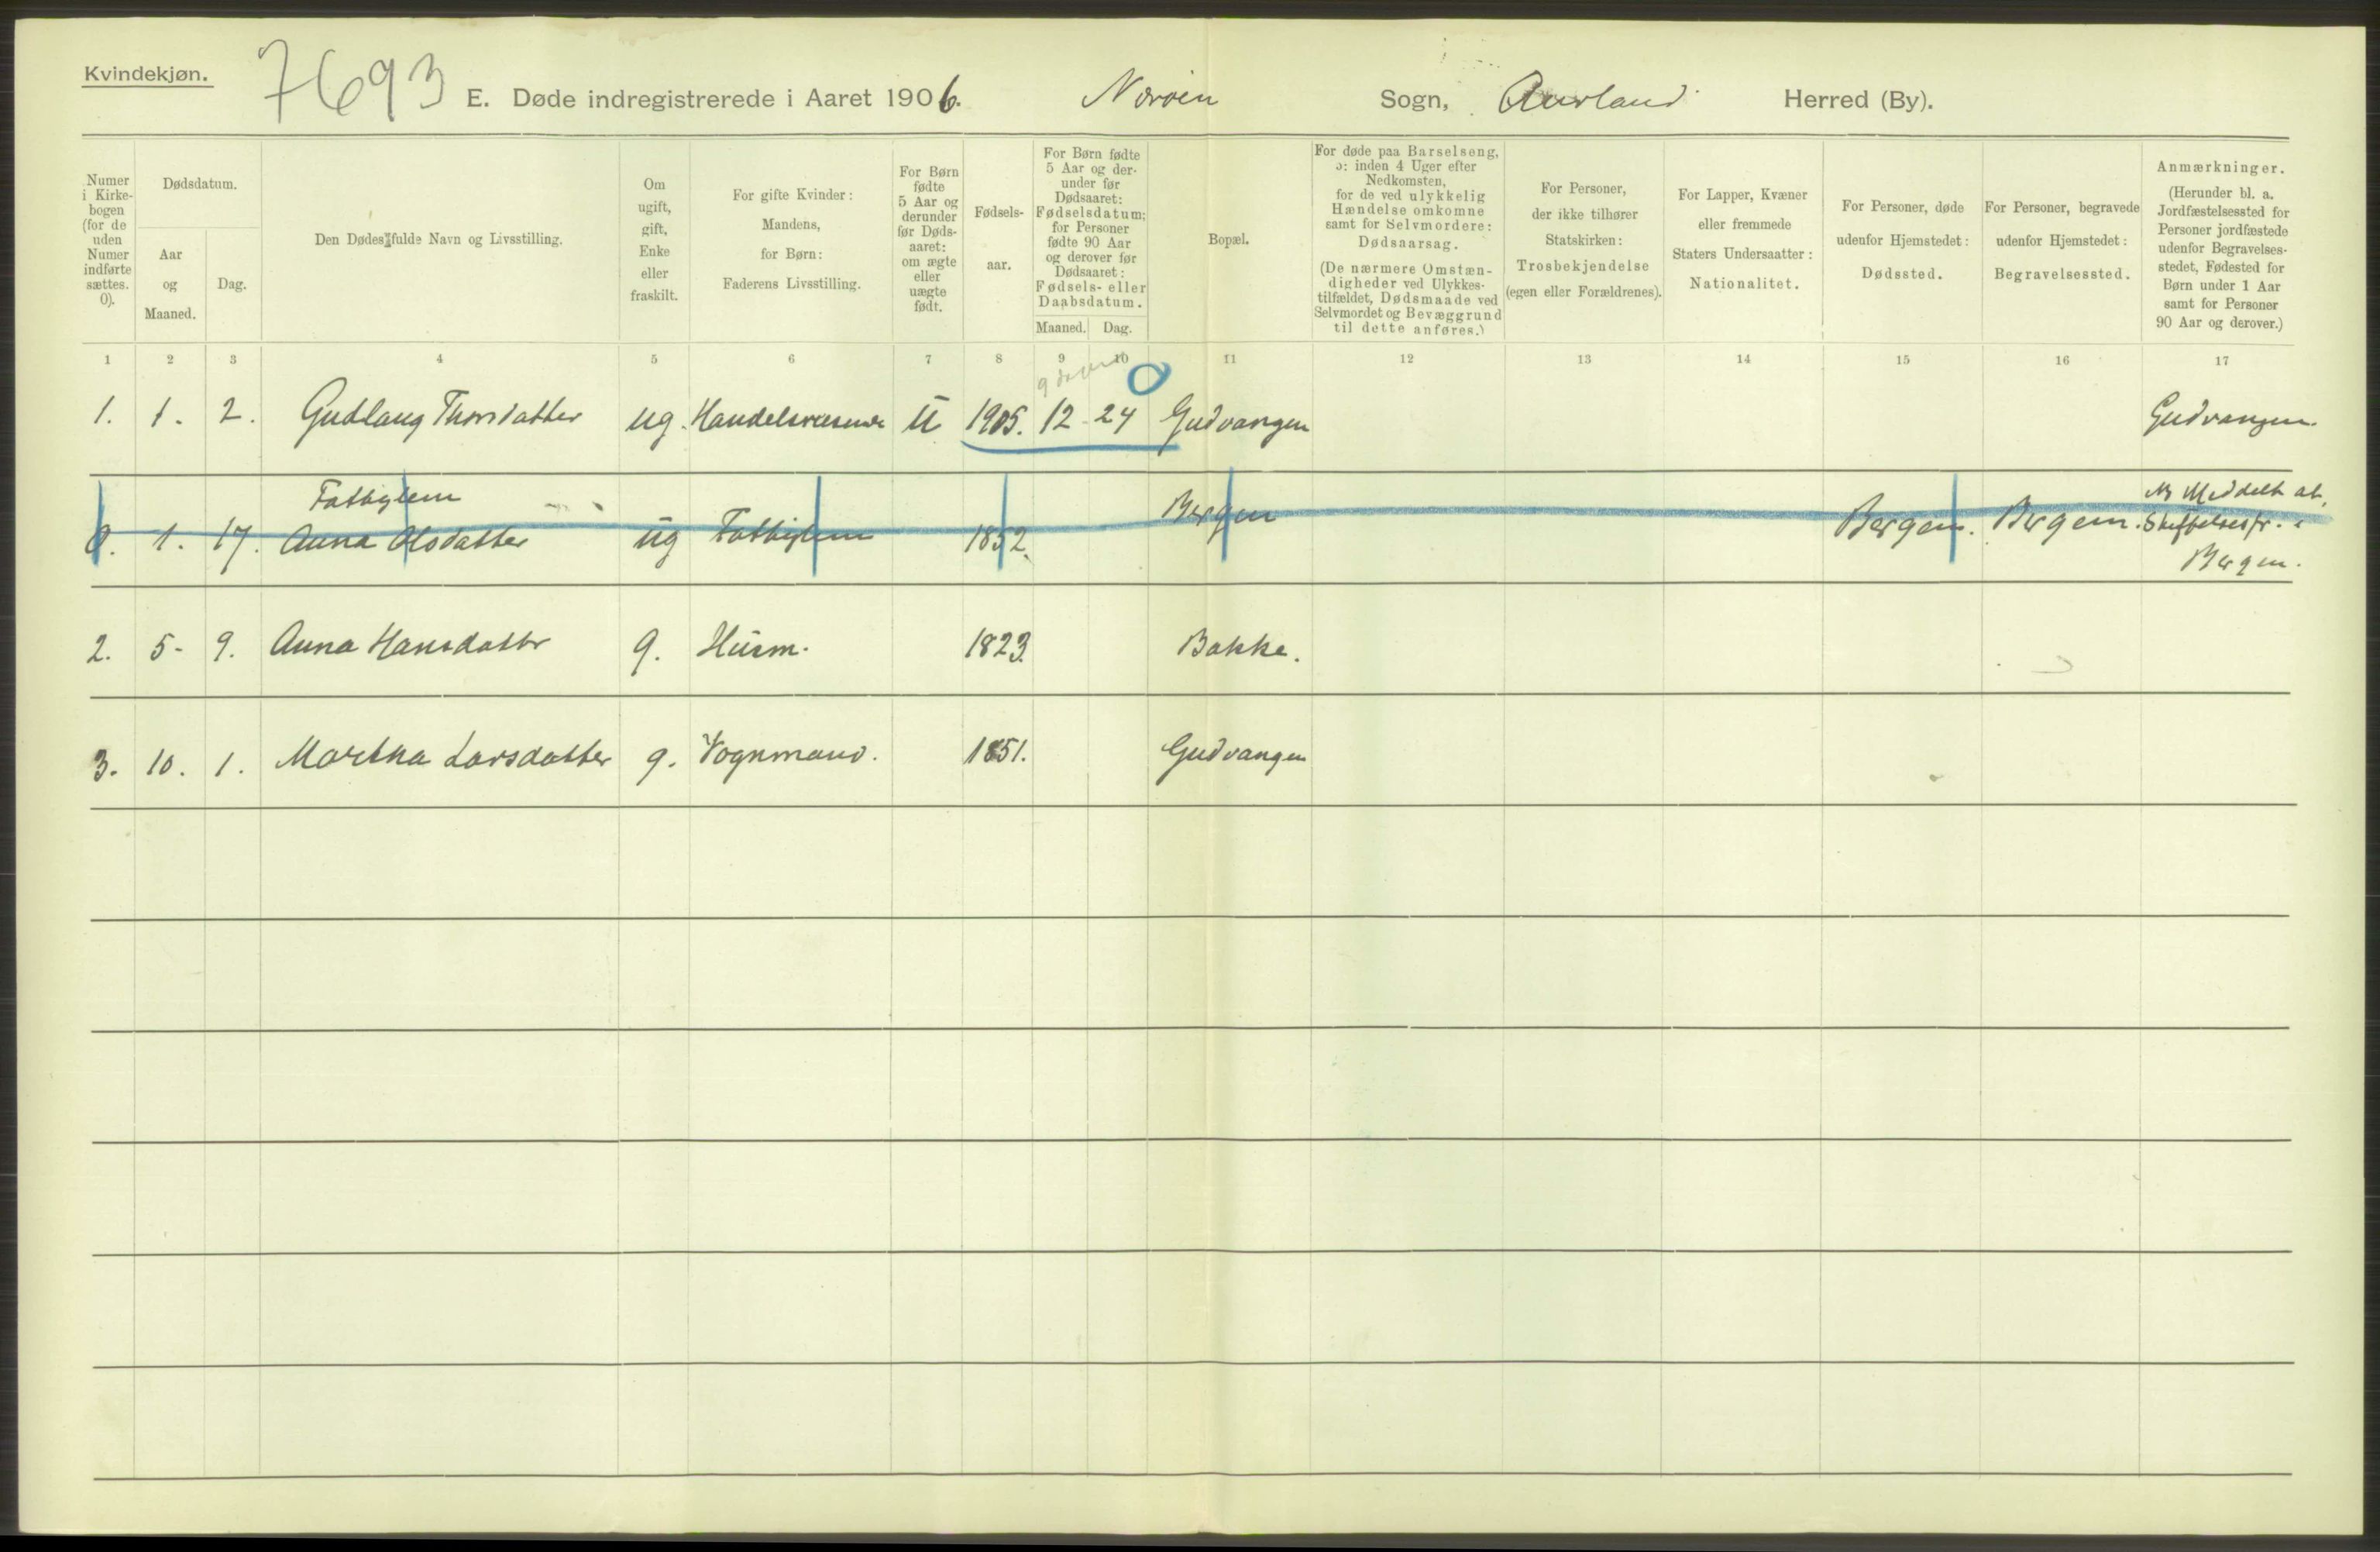 Kvindekjøn.
7693
E. Døde indregistrerede i Aaret 1906. Nærøen Sogn, Aurland Herred (By).
Numer
i Kirke-
bogen
(for de
uden
Numer
indførte
sættes.
0).
Dødsdatum.
Aar
og
Maaned.
Dag.
Den Dødes fulde Navn og Livsstilling.
Om
ugift,
gift,
Enke
eller
fraskilt.
For gifte Kvinder:
Mandens,
for Børn:
Faderens Livsstilling.
For Børn
fødte
5 Aar og
derunder
før Døds-
aaret:
om ægte
eller
uægte
født.
Fødsels-
aar.
For Børn fødte
5 Aar og der-
under før
Dødsaaret:
Fødselsdatum;
for Personer
fødte 90 Aar
og derover før
Dødsaaret:
Fødsels- eller
Daabsdatum.
Maaned. Dag.
Bopæl.
For døde paa Barselseng,
ɔ: inden 4 Uger efter
Nedkomsten,
for de ved ulykkelig
Hændelse omkomne
samt for Selvmordere:
Dødsaarsag.
(De nærmere Omstæn-
digheder ved Ulykkes-
tilfældet, Dødsmaade ved
Selvmordet og Bevæggrund
til dette anføres.)
For Personer,
der ikke tilhører
Statskirken:
Trosbekjendelse
(egen eller Forældrenes).
For Lapper, Kvæner
eller fremmede
Staters Undersaatter:
Nationalitet.
For Personer, døde
udenfor Hjemstedet:
Dødssted.
For Personer, begravede
udenfor Hjemstedet:
Begravelsessted.
Anmærkninger.
(Herunder bl. a.
Jordfæstelsessted for
Personer jordfæstede
udenfor Begravelses-
stedet, Fødested for
Børn under 1 Aar
samt for Personer
90 Aar og derover.)
1 2 3 4 5 6 7 8 9 10 11 12 13 14 15 16 17
9 dage 0
1. 1. 2. Gudlaug Thorsdatter ug. U 1905. 12 - 24 Gudvangen Gudvangen
Fattiglem
0. 1. 17. Anna Olsdatter ug Fattiglem 1852. Bergen Bergen. Bergen. Skiftelsesfr. i
Bergen.
2. 5 - 9. Anna Hansdattr g. Husm. 1823. Bakke.
3. 10. 1. Martha Larsdatter g. Vognmand. 1851. Gudvangen